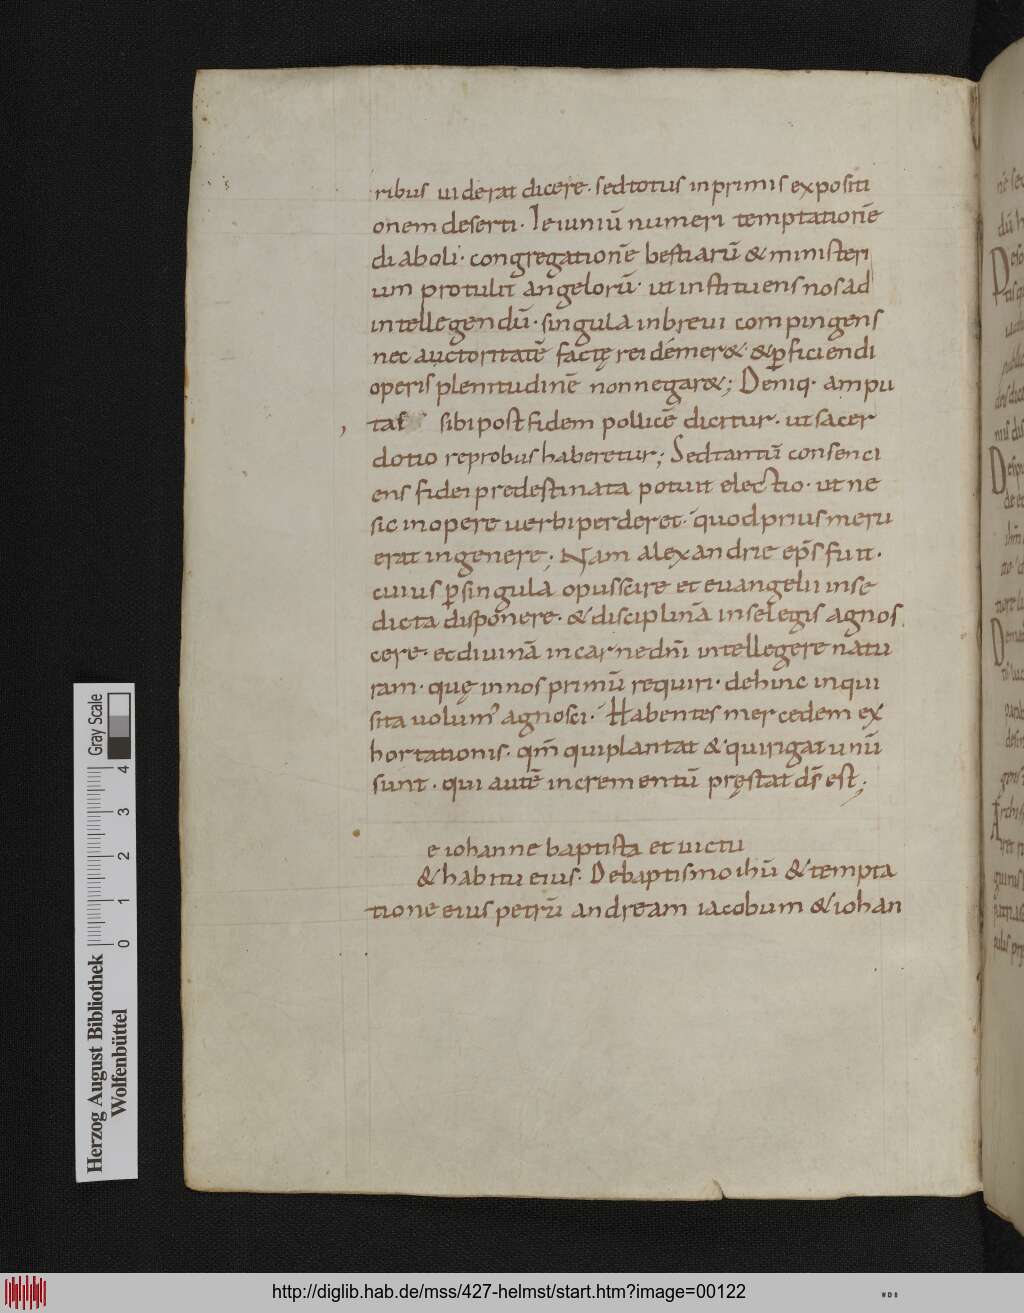 ribus uiderat dicere· sed totus inprimis expositi
onem deserti· Ieiuniū numeri temptationē
diaboli· congregationē bestiarū & ministeri
um protulit angelorū· ut instituens nos ad
intellegendū· singula inbreui compingens
nec auctoritatē factę rei démer&· & ꝑficiendi
operis plenitudinē non negar&; Deniq· ampu
tas sibi post fidem pollicē dicitur· ut sacer
dotio reprobus haberetur; Sed tantū consenci
ens fidei predestinata potuit electio· ut ne
sic inopere uerbi perderet· quod prius meru
erat in genere; Nam alexandrie ep̄s fuit·
cuius ꝑ singula opus scire et euangelii in se
dicta disponere· & disciplinā in se legis agnos
cere· et diuinā incarne dn̄i intellegere natu
ram· quę in nos primū requiri· dehinc inqui
sita uolum' agnosci· Habentes mercedem ex
hortationis· qm̄ qui plantat & qui rigat unū
sunt· qui autē incrementū pręstat ds̄ est;
e iohanne baptista et uictu
& habitu eius· De baptismo ihū & tempta
tione eius petrū andream iacobum & iohan
Herzog August Bibliothek
Wolfenbüttel
0 1 2 3 4
Gray Scale
http://diglib.hab.de/mss/427-helmst/start.htm?image=00122